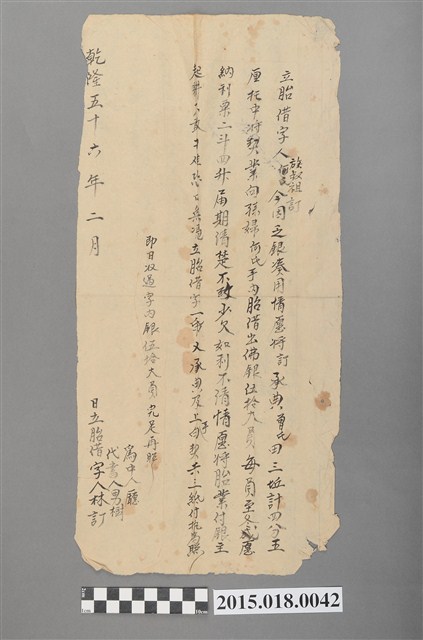 立胎借字人 叔祖訂 今因乏銀湊用情愿將訂承典曾氏田三坵計四分五
厘托中將契業向孫婦 氏手內胎借出佛銀伍拾大員每員至冬愿
納利粟二斗四升屆期清楚不敢少欠如利不清情愿將胎業付銀主
起耕 立胎借字一紙又承典及上手契共三紙付執為照
即日收過字內銀伍拾大員完足再照
為中人
代書人男樹
乾隆五十六年二月 日立胎借字人林訂
2015.018.0042